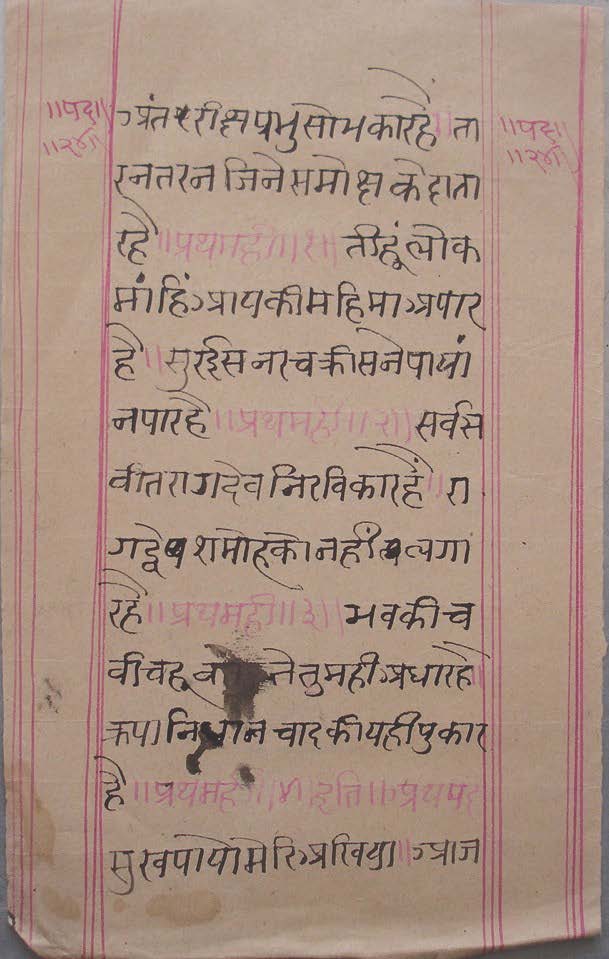 ॥पद॥
॥२४॥
अंतररीक्षप्रभुसोभकारहै॥ता
रनतरनजिनेसमोक्षकेदाता
रहै॥प्रथमही॥१॥तीहूंलोक
मांहिंआयकीमहिमाअपार
है॥सुरईसनरचक्रीसनेपायां
नपारहै॥प्रथमही॥२॥सर्वस
वीतरागदेवनिरविकारहैं॥रा
गद्वेषशमोहकोनहींलगा
रहै॥प्रथमही॥३॥भवकीच
वीचहूव तेतुमहीअधारहै॥
क्रपानिधानचादकीयहीपुकार
है॥प्रथमही॥४॥इति॥अथपद
सुखपायोमेरिअखिया॥आज
॥पद॥
॥२४॥